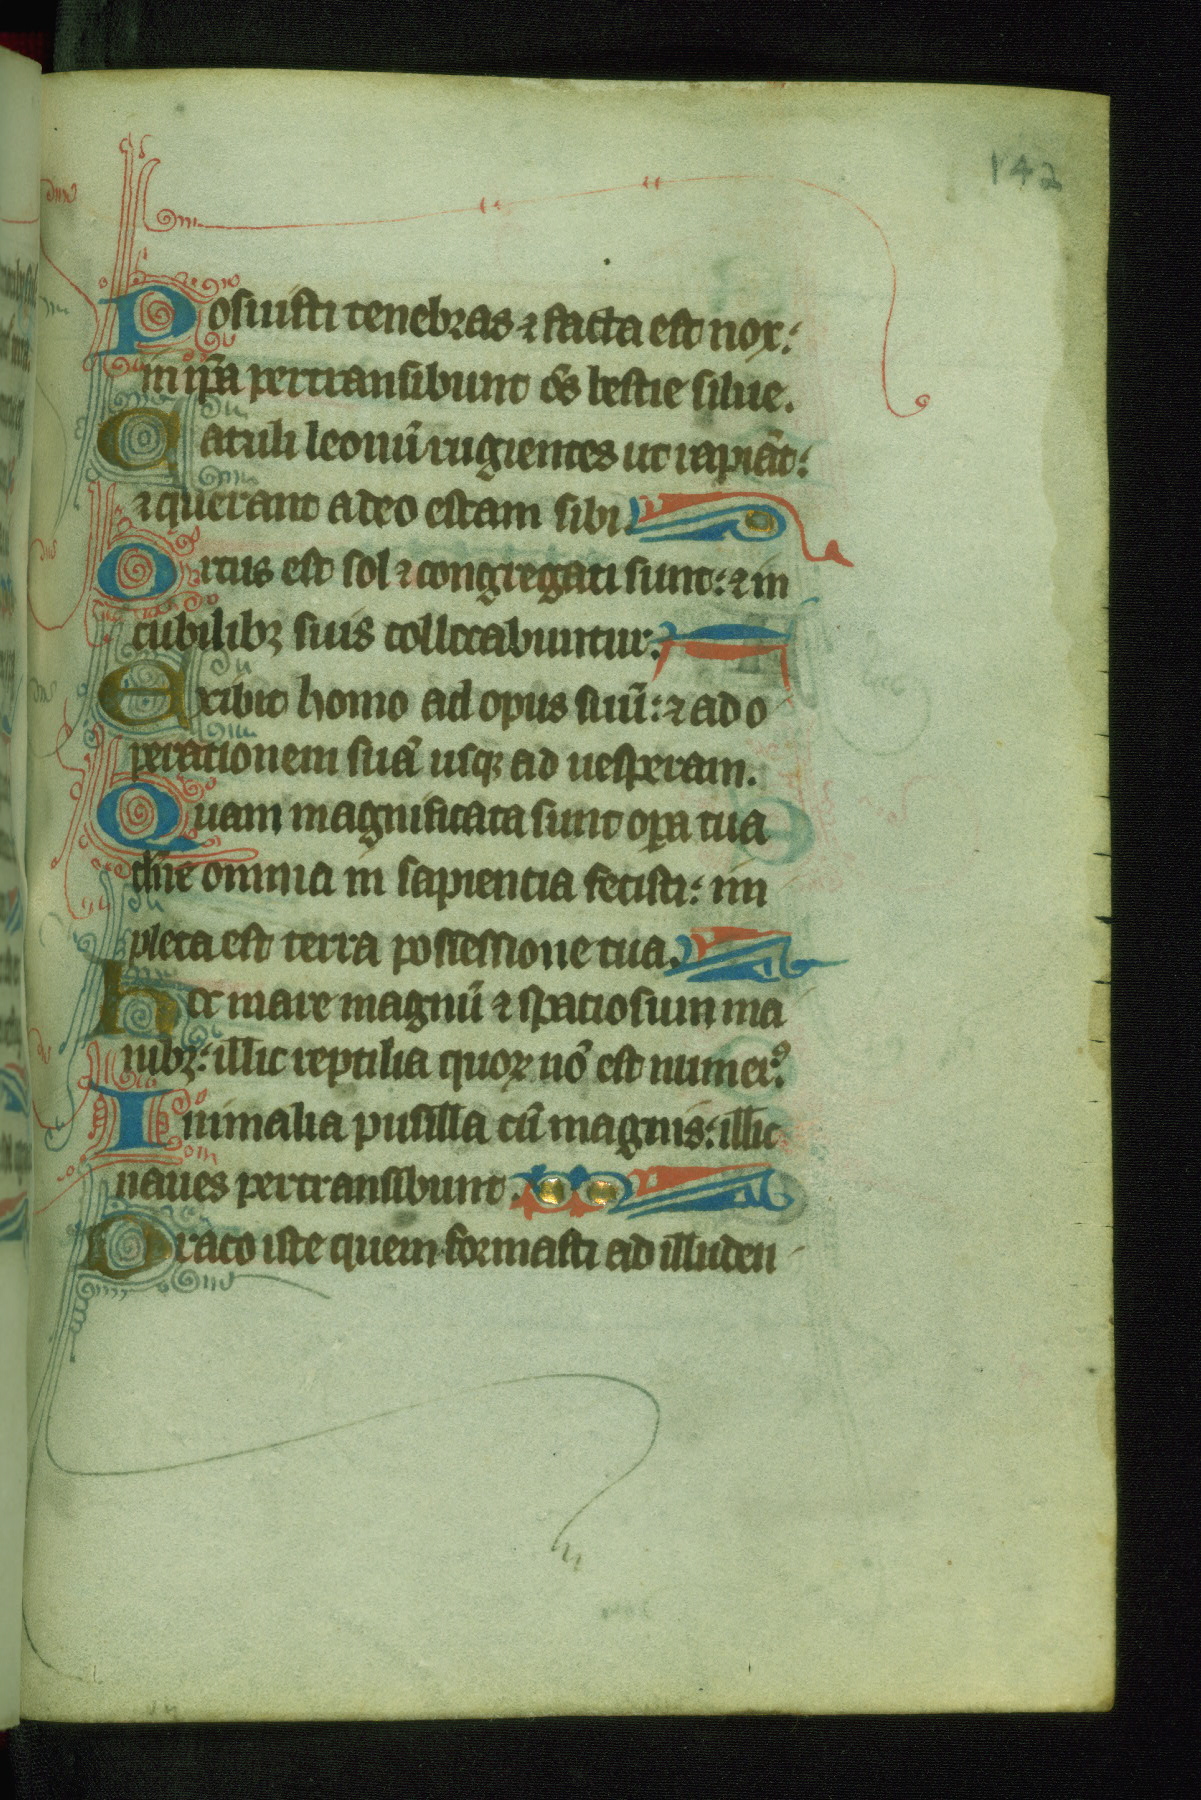 142
Posuisti tenebras ⁊ facta est nox:
in ip̄a pertransibunt om̄s bestie silue.
Catuli leonū rugientes ut rapiāt:
⁊ querant a deo escam sibi.
Ortus est sol ⁊ congregati sunt: ⁊ in
cubilibꝫ suis collocabuntur.
Exibit homo ad opus suū: ⁊ ad o
perationem suā usqꝫ ad uesperam.
Quam magnificata sunt oꝑa tua
dn̄e omnia in sapientia fecisti: im
pleta est terra possessione tua.
hoc mare magnū ⁊ spatiosum ma
nibꝫ: illic reptilia quoꝝ nō est numerꝰ.
Inimalia pusilla cū magnis: illic
naues pertransibunt.
Draco iste quem formasti ad illuden